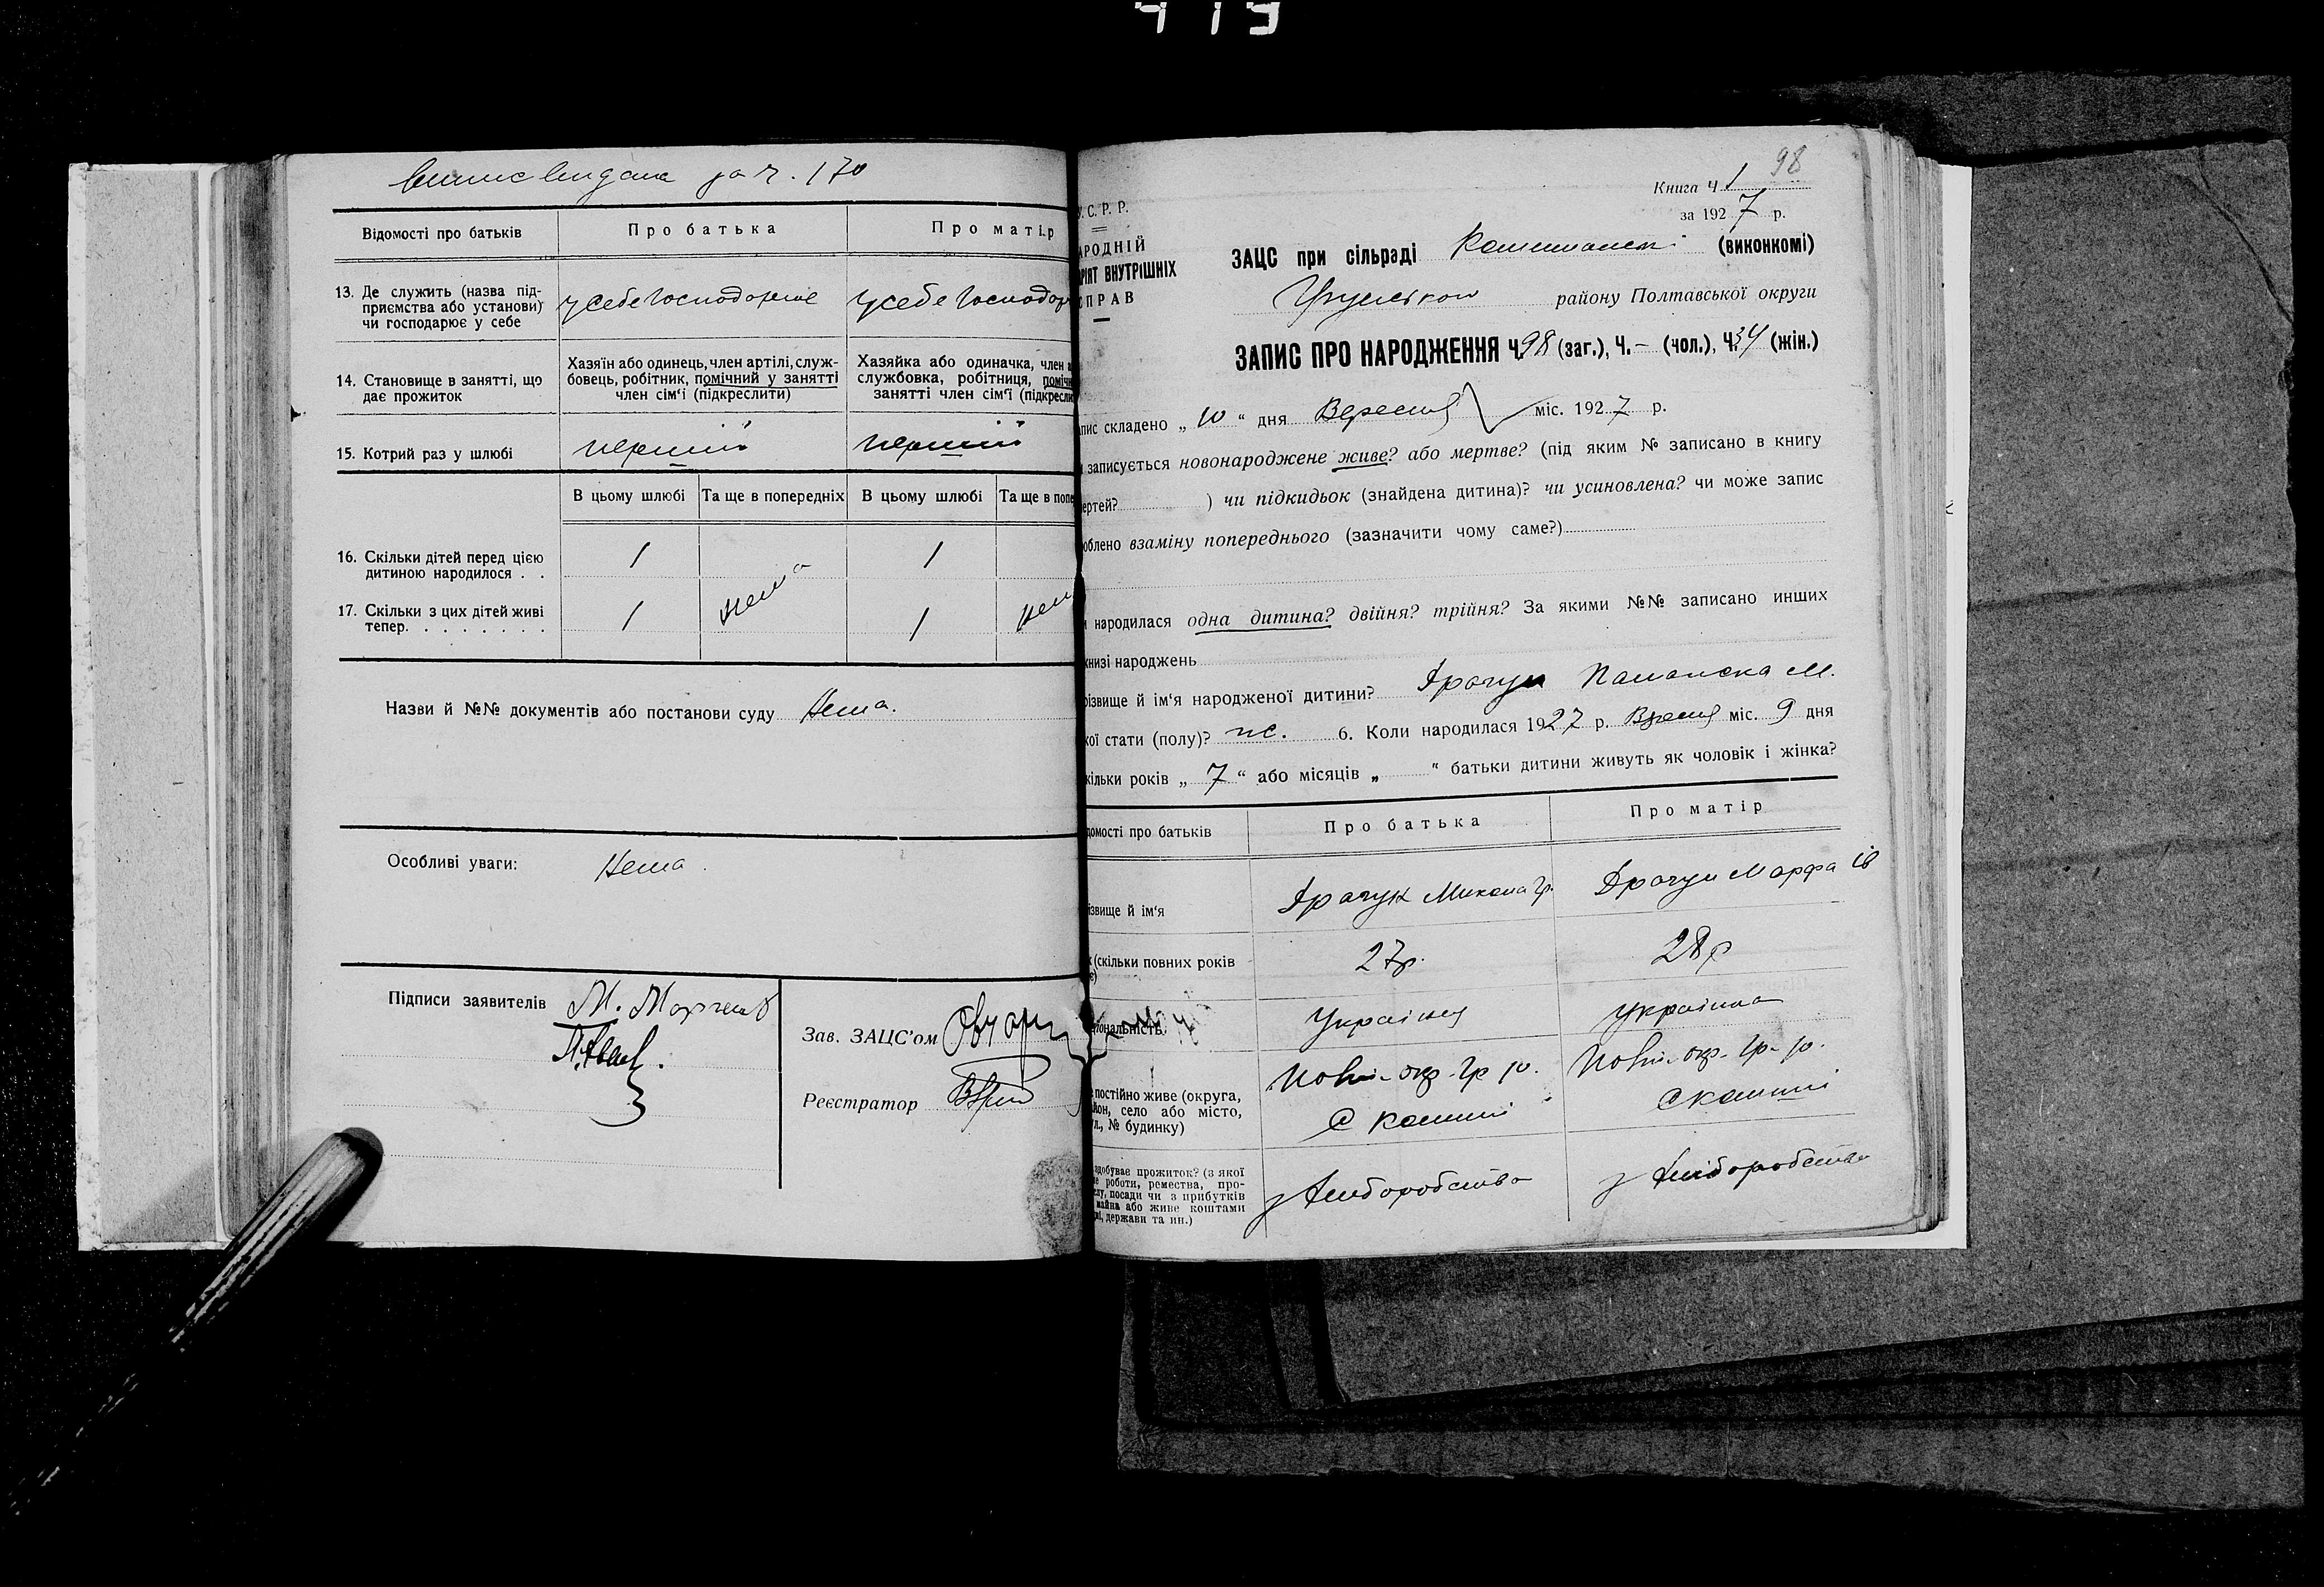 419
Виписъ видана за ч. 170
Відомості про батьків
Про батька
Про матір
13. Де служить (назва під-
приємства або установи)
чи господарює у себе
у себе Господорює
у себе Господор
14. Становище в занятті, що
дає прожиток
Хазяїн або одинець, член артілі, служ-
бовець, робітник, помічний у занятті
член сім'ї (підкреслити)
Хазяйка або одиначка, член а
службовка, робітниця, поміч
занятті член сім'ї (підкресли
15. Котрий раз у шлюбі
перший
перший
В цьому шлюбі
Та ще в попередніх
В цьому шлюбі
Та ще в попе
16. Скільки дітей перед цією
дитиною народилося . .
1
1
17. Скільки з цих дітей живі
тепер. . . . . . . .
1
нема
1
нем
Назви й №№ документів або постанови суду Нема.
Особливі уваги: Нема.
Підписи заявителів М.
Зав. ЗАЦС'ом
Реєстратор
98
Книга Ч 1
за 1927 р.
У.С.Р.Р.
АРОДНІЙ
РІЯТ ВНУТРІШНІХ
СПРАВ
ЗАЦС при сільраді (виконкомі)
району Полтавської округи
ЗАПИС ПРО НАРОДЖЕННЯ Ч. 98 (заг.), Ч. - (чол.), Ч. 34 (жін.)
пис складено „ 10 “ дня Вересня міс. 1927 р.
записується новонароджене живе? або мертве? (під яким № записано в книгу
ертей? ) чи підкидьок (знайдена дитина)? чи усиновлена? чи може запис
облено взаміну попереднього (зазначити чому саме?)
народилася одна дитина? двійня? трійня? За якими №№ записано инших
книзі народжень
різвище й ім'я народженої дитини? М.
кої стати (полу)? ж. 6. Коли народилася 1927 р. Вресня міс. 9 дня
кільки років „ 7 “ або місяців „ “ батьки дитини живуть як чоловік і жінка?
домості про батьків
Про батька
Про матір
ізвище й ім'я
Микола Гр.
Марфа Ів
(скільки повних років
27 р.
28 р
ціональність
Українец
Українка
постійно живе (округа,
йон, село або місто,
л., № будинку)
Полт. окр. Гр р.
Полт. окр. Гр. р.
здобуває прожиток? (з якої
роботи, ремества, про-
лу, посади чи з прибутків
майна або живе коштами
ні, держави та ин.)
з Хліборобства
з Хліборобства